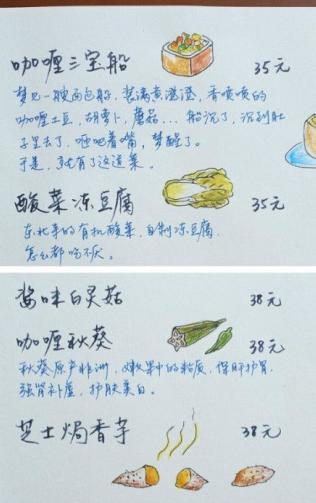 咖喱三宝船 35元
梦见一艘面包船，装满黄澄澄，香喷喷的
咖喱土豆，胡萝卜，蘑菇... 船沉了，沉到肚
子里去了，咂吧着嘴，梦醒了。
于是，就有了这道菜。
酸菜冻豆腐 35元
东北来的有机酸菜，自制冻豆腐，
怎么都吃不厌。
酱味白灵菇 38元
咖喱秋葵 38元
秋葵原产非洲，嫩果中的粘质，保肝护胃，
强肾补虚，护肤美白。
芝士焗香芋 38元